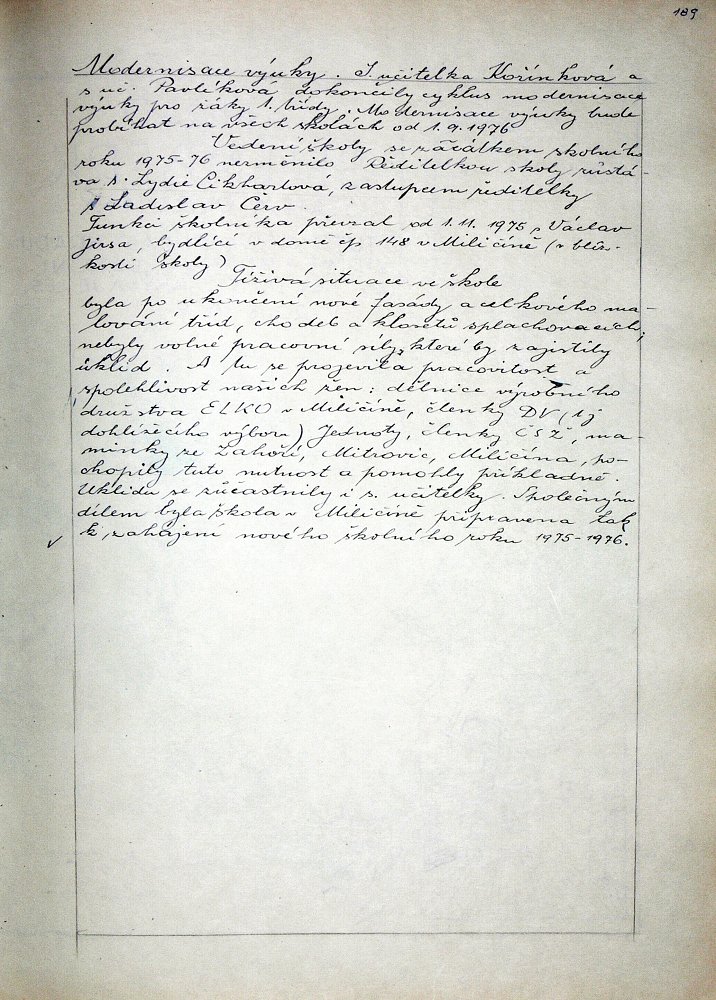 189
Modernisace výuky. S. učitelka Kořínková a
s uč. Pavlíková dokončily cyklus modernisace
výuky pro žáky 1. třídy. Modernisace výuky bude
probíhat na všech školách od 1.9.1976
Vedení školy se začátkem školního
roku 1975-76 neměnilo Ředitelkou školy zůstá-
va s. Lydie Cikhartová, zastupcem ředitelky
s Ladislav Červ.
Funkci školníka převzal od 1.11.1975 s Václav
Jirsa, bydlící v domě čp 148 v Miličíně (v blíz-
kosti školy)
Tíživá situace ve škole
byla po ukončení nové fasády a celkového ma-
lování tříd, chodeb a klosetů splachovacích;
nebyly volné pracovní síly, které by zajistily
úklid. A tu se projevila pracovitost a
spolehlivost našich žen: dělnice výrobního
družstva ELKO v Miličíně, členky DV (tj
dohlížecího výboru) Jednoty, členky ČSŽ, ma-
minky ze Záhoří, Mitrovic, Miličína, po-
chopily tuto nutnost a pomohly příkladně.
Uklidu se zůčastnily i s. učitelky. Společným
dílem byla škola v Miličíně připravena tak
k zahájení nového školního roku 1975-1976.